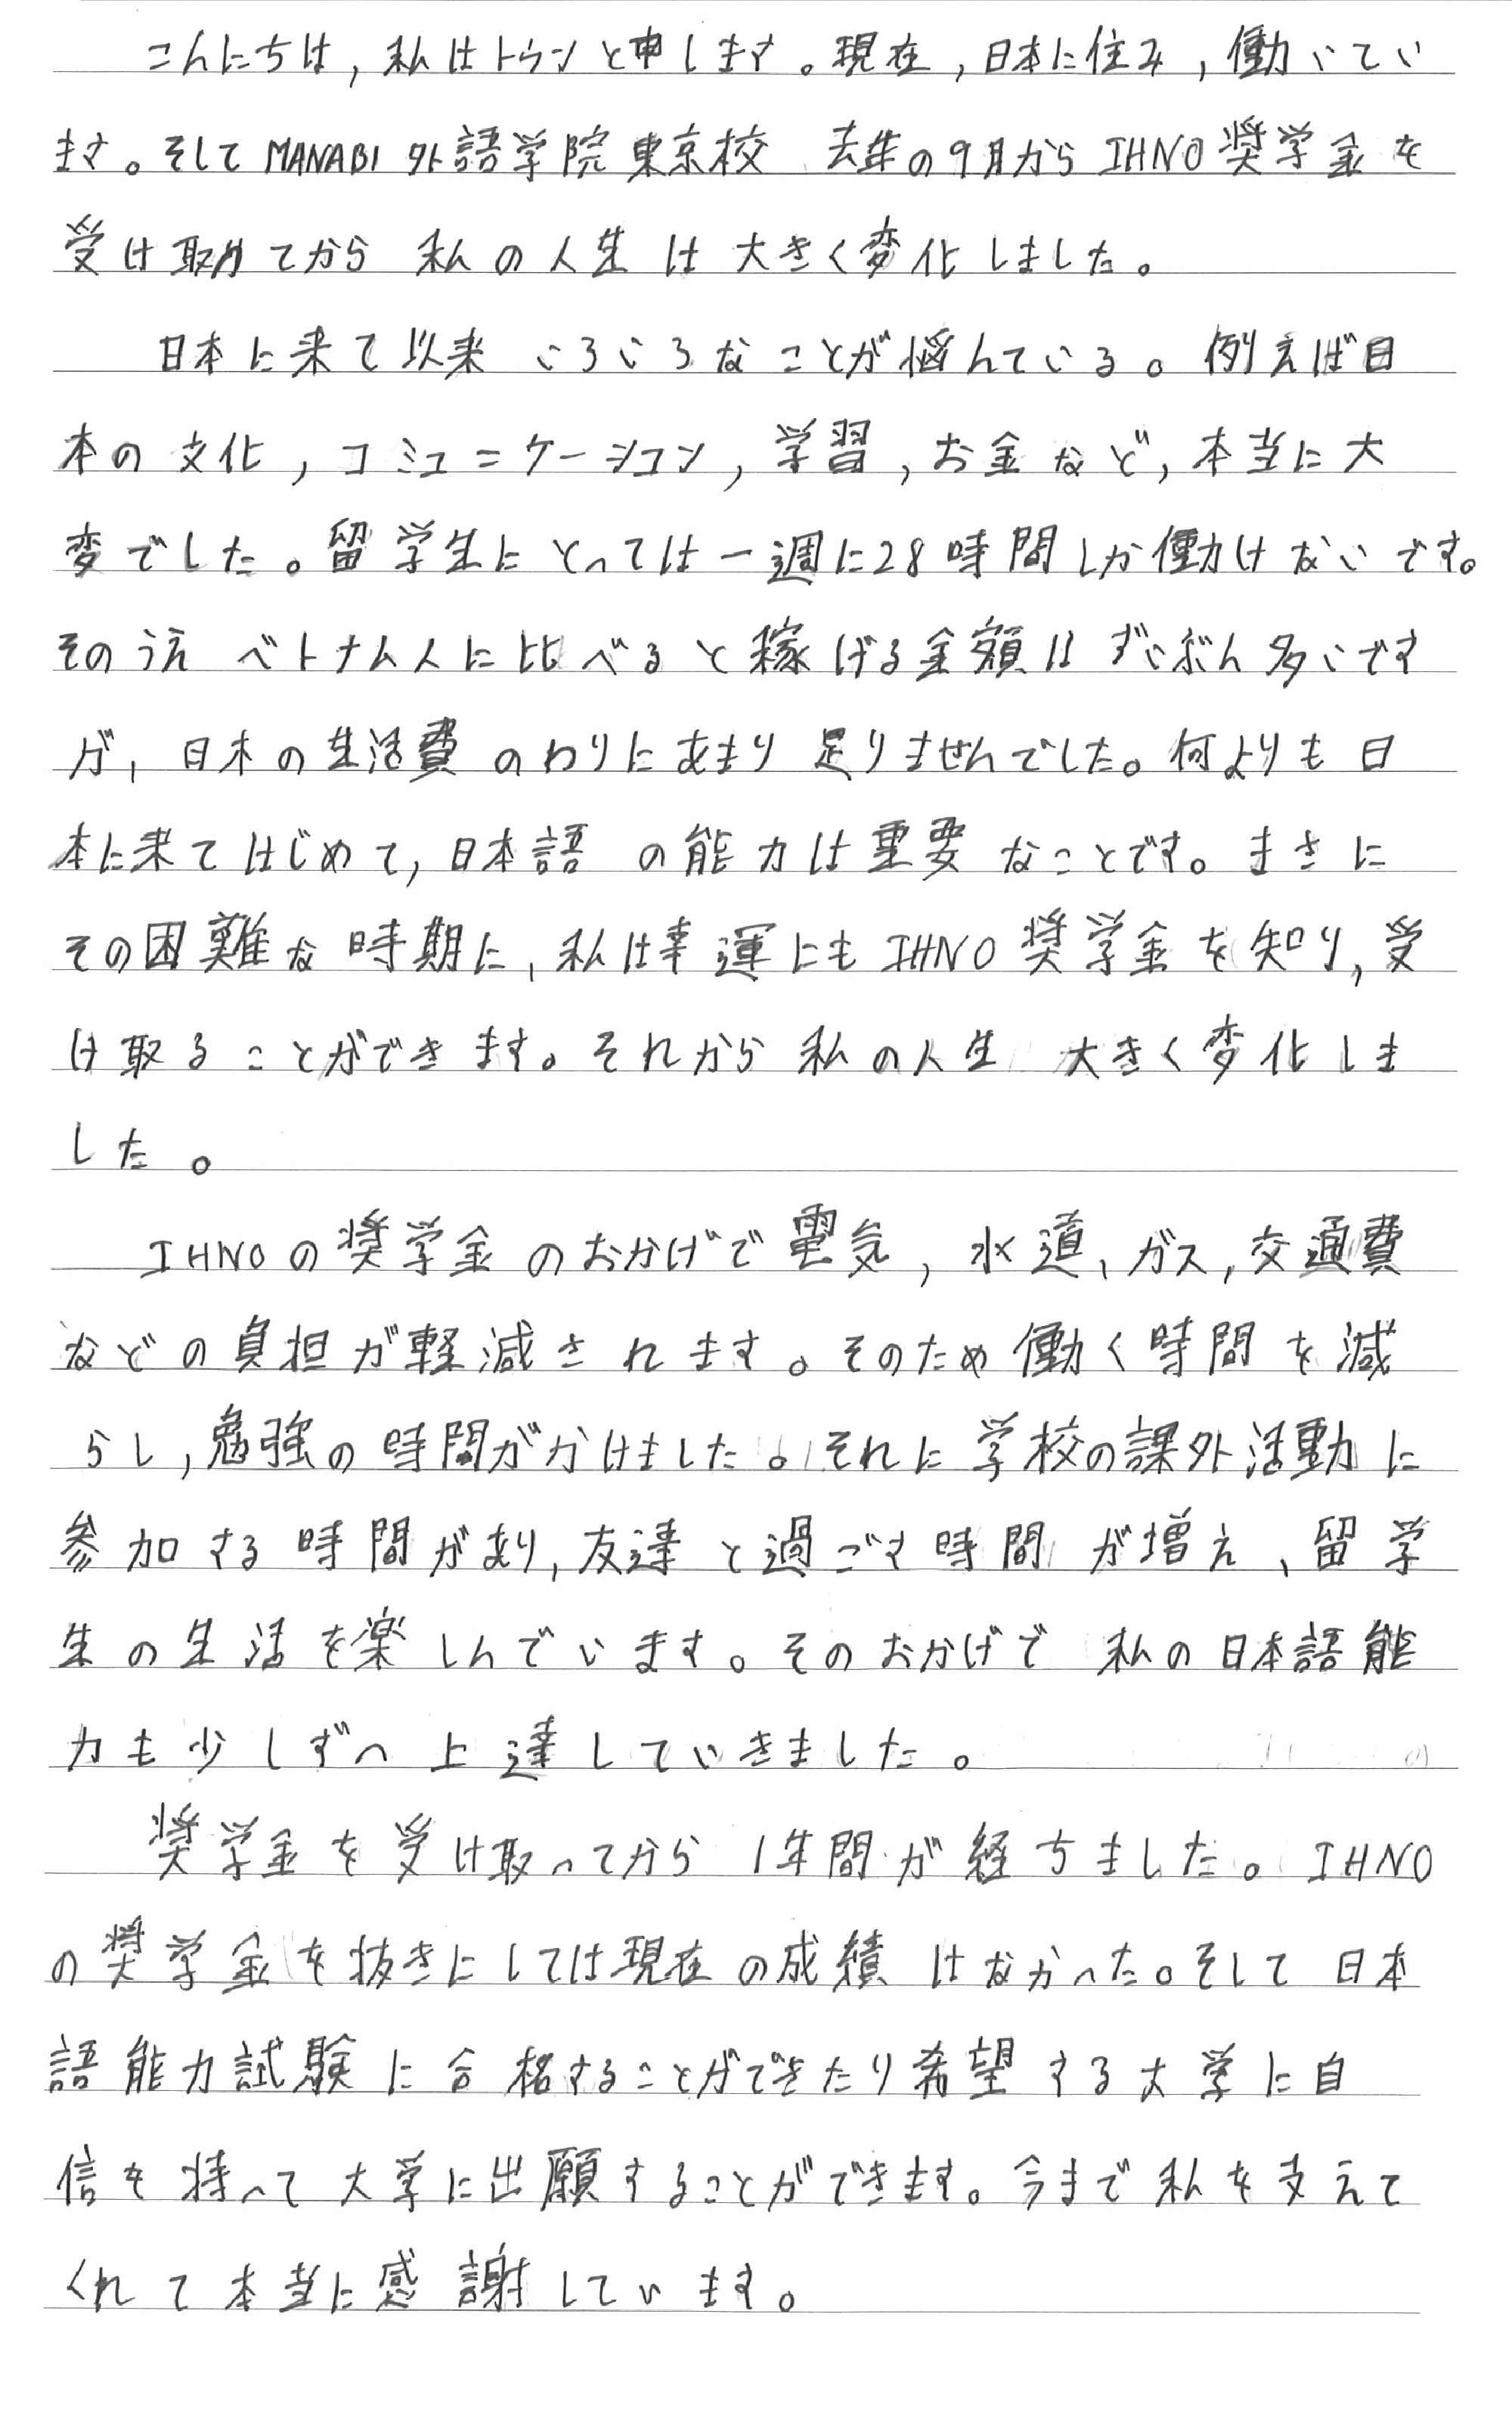 こんにちは,私はトゥンと申します。現在,日本に住み,働いてい
ます。そしてMANABI外語学院東京校 去年の9月からIHNO奨学金を
受け取ってから 私の人生は大きく変化しました。
日本に来て以来 いろいろなことが悩んでいる。例えば日
本の文化,コミュニケーション,学習,お金など,本当に大
変でした。留学生にとっては一週に28時間しか働けないです。
そのうえ ベトナム人に比べると稼げる金額はずいぶん多いです
が,日本の生活費のわりにあまり足りませんでした。何よりも日
本に来てはじめて,日本語の能力は重要なことです。まさに
その困難な時期に,私は幸運にもIHNO奨学金を知り,受
け取ることができます。それから私の人生 大きく変化しま
した。
IHNOの奨学金のおかげで電気,水道、ガス,交通費
などの負担が軽減されます。そのため働く時間を減
らし,勉強の時間がかけました。それに学校の課外活動に
参加する時間があり,友達と過ごす時間が増え、留学
生の生活を楽しんでいます。そのおかげで 私の日本語能
力も少しずつ上達していきました。
奨学金を受け取ってから 1年間が経ちました。IHNO
の奨学金を抜きにしては現在の成績はなかった。そして日本
語能力試験に合格することができたり希望する大学に自
信を持って大学に出願することができます。今まで私を支えて
くれて本当に感謝しています。